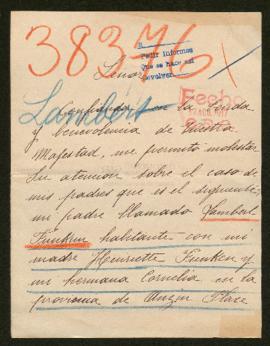 38376
Pedir informes
Que se hace así
devolver
Lambert
Fecho
Señor
Confiando en la bondad
y benevolencia de Vuestra
Majestad, me permito molestar
Su atencion sobre el caso de
mis padres que es el siguiente:
mi padre llamado Lambert
Funken habitante con mi
madre Henriette Funken y
mi hermana Cornelia en la
provincia de Place